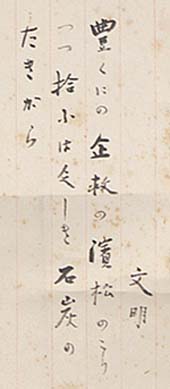 文明
豊くにの企救の濱松のこり
つつ拾ふは久しき石炭の
たきがら